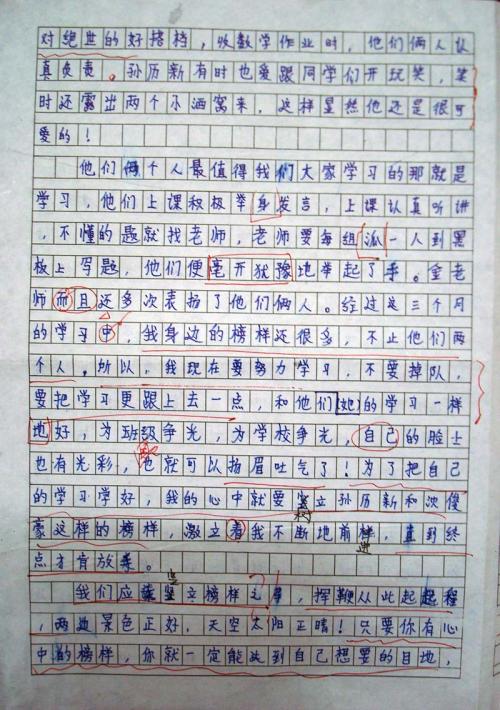 对绝世的好搭档，收数学作业时，他们俩人认
真负责。孙历新有时也爱跟同学们开玩笑，笑
时还露出两个小酒窝来，这样显然他还是很可
爱的！
他们俩个人最值得我们大家学习的那就是
学习，他们上课积极举身发言，上课认真听讲
，不懂的题就找老师，老师要每组派一人到黑
板上写题，他们便毫开犹豫地举起了手。金老
师而且还多次表扬了他们俩人。经过这三个月
的学习中，我身边的榜样还很多，不止他们两
个人。所以，我现在要努力学习，不要掉队，
要把学习更跟上去一点，和他们(她)的学习一样
地好，为班级争光，为学校争光，自己的脸上
也有光彩，也就可以扬眉吐气了！为了把自己
的学习学好，我的心中就要竖立孙历新和沈俊
豪这样的榜样，激立着我不断地前样，直到终
树
进
点才肯放弃。
我们应该竖立榜样之，挥鞭从此起程
，两边景色正好，天空太阳正晴！只要你有心
中的榜样，你就一定能达到自己想要的目地，